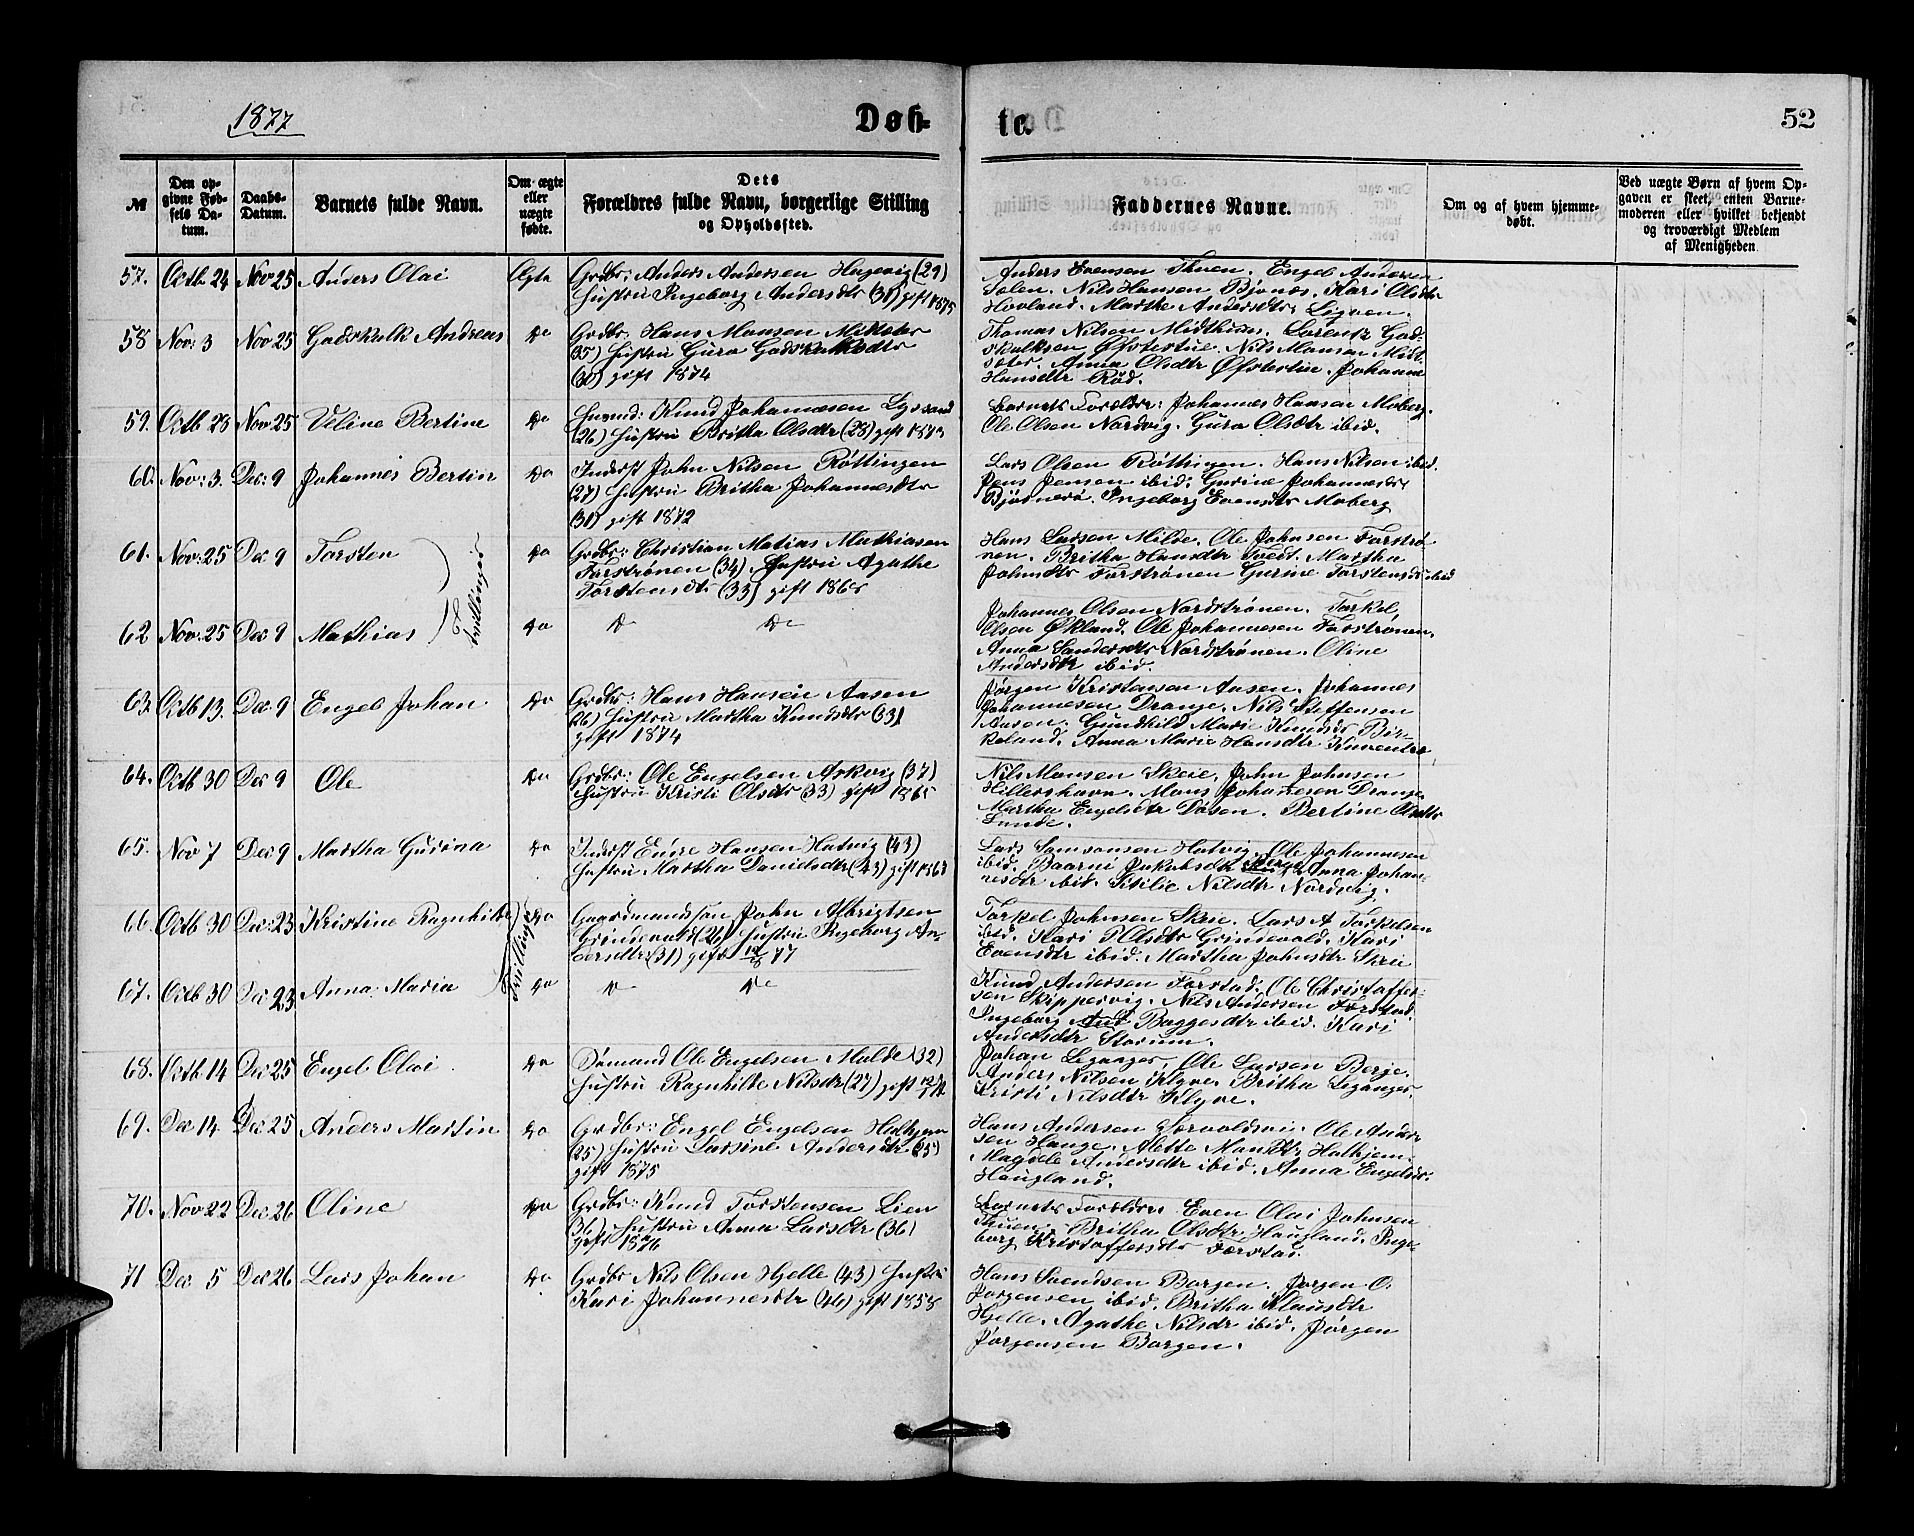 1877
Døb-
te.
52
№
Den op-
givne Fød-
sels Da-
tum.
Daabs-
Datum.
Barnets fulde Navn.
Om ægte
eller
uægte
fødte.
Dets
Forældres fulde Navn, borgerlige Stilling
og Opholdssted.
Faddernes Navne.
Om og af hvem hjemme-
døbt.
Ved uægte Børn af hvem Op-
gaven er skeet, enten Barne-
moderen eller hvilket bekjendt
og troværdigt Medlem
af Menigheden.
57. Octb 24 Nov 25 Anders Olai Ægte
Grdbr: Anders Andersen Hagevig (29)
Hustru Ingeborg Andersdtr (31) gift 1875
Anders Evensen Thuen. Engel Andersen
Solen. Nils Hansen Bjønes. Kari Olsdtr
Hovland. Marthe Andersdtr Ligven.
58 Nov: 3 Nov 25 Godskalk Andreas Do
Grdbr. Hans Monsen Midtsæter
(35) Hustru Guro Godskalksdtr
(30) gift 1874
Thomas Nilsen Midthuen. Lorentz God-
skalksen Øfstertue. Nils Monsen Midt-
sæter. Anna Olsdtr Øfstertue. Johanna
Hansdtr Rød.
59. Octb 28 Nov 25 Veline Bertine Do
Huusmd: Knud Johannesen Lyssand
(26) Hustru Britha Olsdtr (28) gift 1873
Barnets Forældre: Johannes Hansen Moberg.
Ole Olsen Nordvig. Gura Olsdtr ibid.
60. Nov: 3. Dec: 9 Johannes Bertin Do
Inderst John Nilsen Røttingen
(27) Hustru Britha Johannesdtr
(31) gift 1872
Lars Olsen Røttingen. Hans Nilsen ibid.
Jens Jensen ibid: Gurine Johannesdtr
Bjørnerø. Ingeborg Evensdtr Moberg
61. Nov: 25 Dec 9 Torsten Do
Tvillinger
Grdbr: Christian Matias Mathiasen
Forstrønen (34) Hustru Agathe
Torstensdt: (33) gift 1865
Hans Larsen Milde. Ole Johnsen Forstrø-
nen. Britha Hansdtr Tvedt. Martha
Johnsdtr Forstrønen Gurine Torstensdtr ibid
62 Nov: 25 Dec 9 Mathias Do
Do Do
Johannes Olsen Nordstrønen. Torkel
Olsen Økland. Ole Johannesen Forstrønen.
Anna Sandersdtr Nordstrønen. Oline
Andersdtr ibid.
63. Octb 13. Dec 9 Engel Johan Do
Grdbr: Hans Hansen Aasen
(26) Hustru Martha Knudsdtr (33)
gift 1874
Jørgen Kristensen Aasen. Johannes
Johannesen Drange. Nils Steffensen
Aasen. Gundhild Marie Knudsdtr Bir-
keland. Anna Marie Hansdtr
64. Octb 30 Dec 9 Ole Do
Grdbr: Ole Engelsen Askvig (37)
Hustru Kristi Olsdtr (33) gift 1865
Nils Monsen Skeie. John Johnsen
Hillershavn. Mons Johannesen Drange
Martha Engelsdtr Døsen. Bertine Olsdtr
Lunde.
65. Nov 7 Dec 9 Martha Gurina Do
Inderst Hansen Hatvig (43)
Hustru Martha Danielsdtr (43) gift 1863
Lars Samsonsen Hatvig. Ole Johannesen
ibid. Baarni Jakobsdtr Anna Johan-
nesdtr ibid. Sitilie Nilsdtr Nordvig.
66 Octb 30 Dec: 23 Kristine Ragnhilde Do
Tvillinger
Gaardmandssøn John Albrigtsen
Grindevold (26) Hustru Ingeborg An-
dersdtr (31) gift 77
Torkel Johnsen Skeie. Lars A Torkelsen
ibid. Kari POlsdtr Grindevold. Kari
Evensdtr ibid. Martha Johnsdtr Skeie
67. Octb 30 Dec 23 Anna Maria Do
Do Do
Knud Andersen Forstad. Ole Christoffer-
sen Skippervig. Nils Andersen Forstad.
Ingeborg Baggesdtr ibid. Kari
Andersdtr Storum.
68. Octb 14 Dec 25 Engel Olai Do
Sømand Ole Engelsen Malde (32)
Hustru Ragnhilde Nilsdtr (27) gift
Johan Leganger, Ole Larsen Berje.
Anders Nilsen Klyve. Britha Leganger.
Kristi Nilsdtr Klyve.
69. Dec 14. Dec 25 Anders Martin Do
Grdbr: Engel Engelsen Halhjem
(25) Hustru Larsine Andersdtr (25)
gift 1875
Hans Andersen Ole Ander-
sen Hauge. Alette Monsdtr Halhjem.
Magdele Andersdtr ibid. Anna Engelsdtr
Haugland.
70. Nov 22 Dec 26 Oline Do
Grdbr: Knud Torstensen Lien
(36) Hustru Anna Larsdtr (36)
gift 1876
Barnets Forældre Even Olai Johnsen
Thuen. Britha Olsdtr Haugland. Inge-
borg Kristoffersdtr Forstad.
71 Dec 5 Dec 26 Lars Johan Do
Grdbr Nils Olsen Hjelle (43) Hustru
Kari Johannesdtr (46) gift 1858
Hans Svendsen Borgen. Jørgen O.
Jørgensen ibid. Britha Klausdtr
Hjelle. Agathe Nilsdr ibid. Jørgen
Jørgensen Borgen.